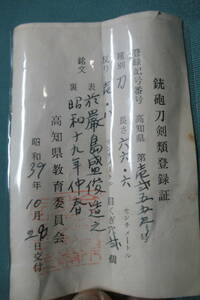 銃砲刀剣類登録証
登録記号番号 高知県 第壱弐五五号
種別 刀
長さ 六六・六 センチメートル
反り 壱・八 センチメートル
目くぎ穴 弐 個
銘文
表 於厳島盛俊造之
裏 昭和十九年仲春
昭和39年10月28日交付
高知県教育委員会